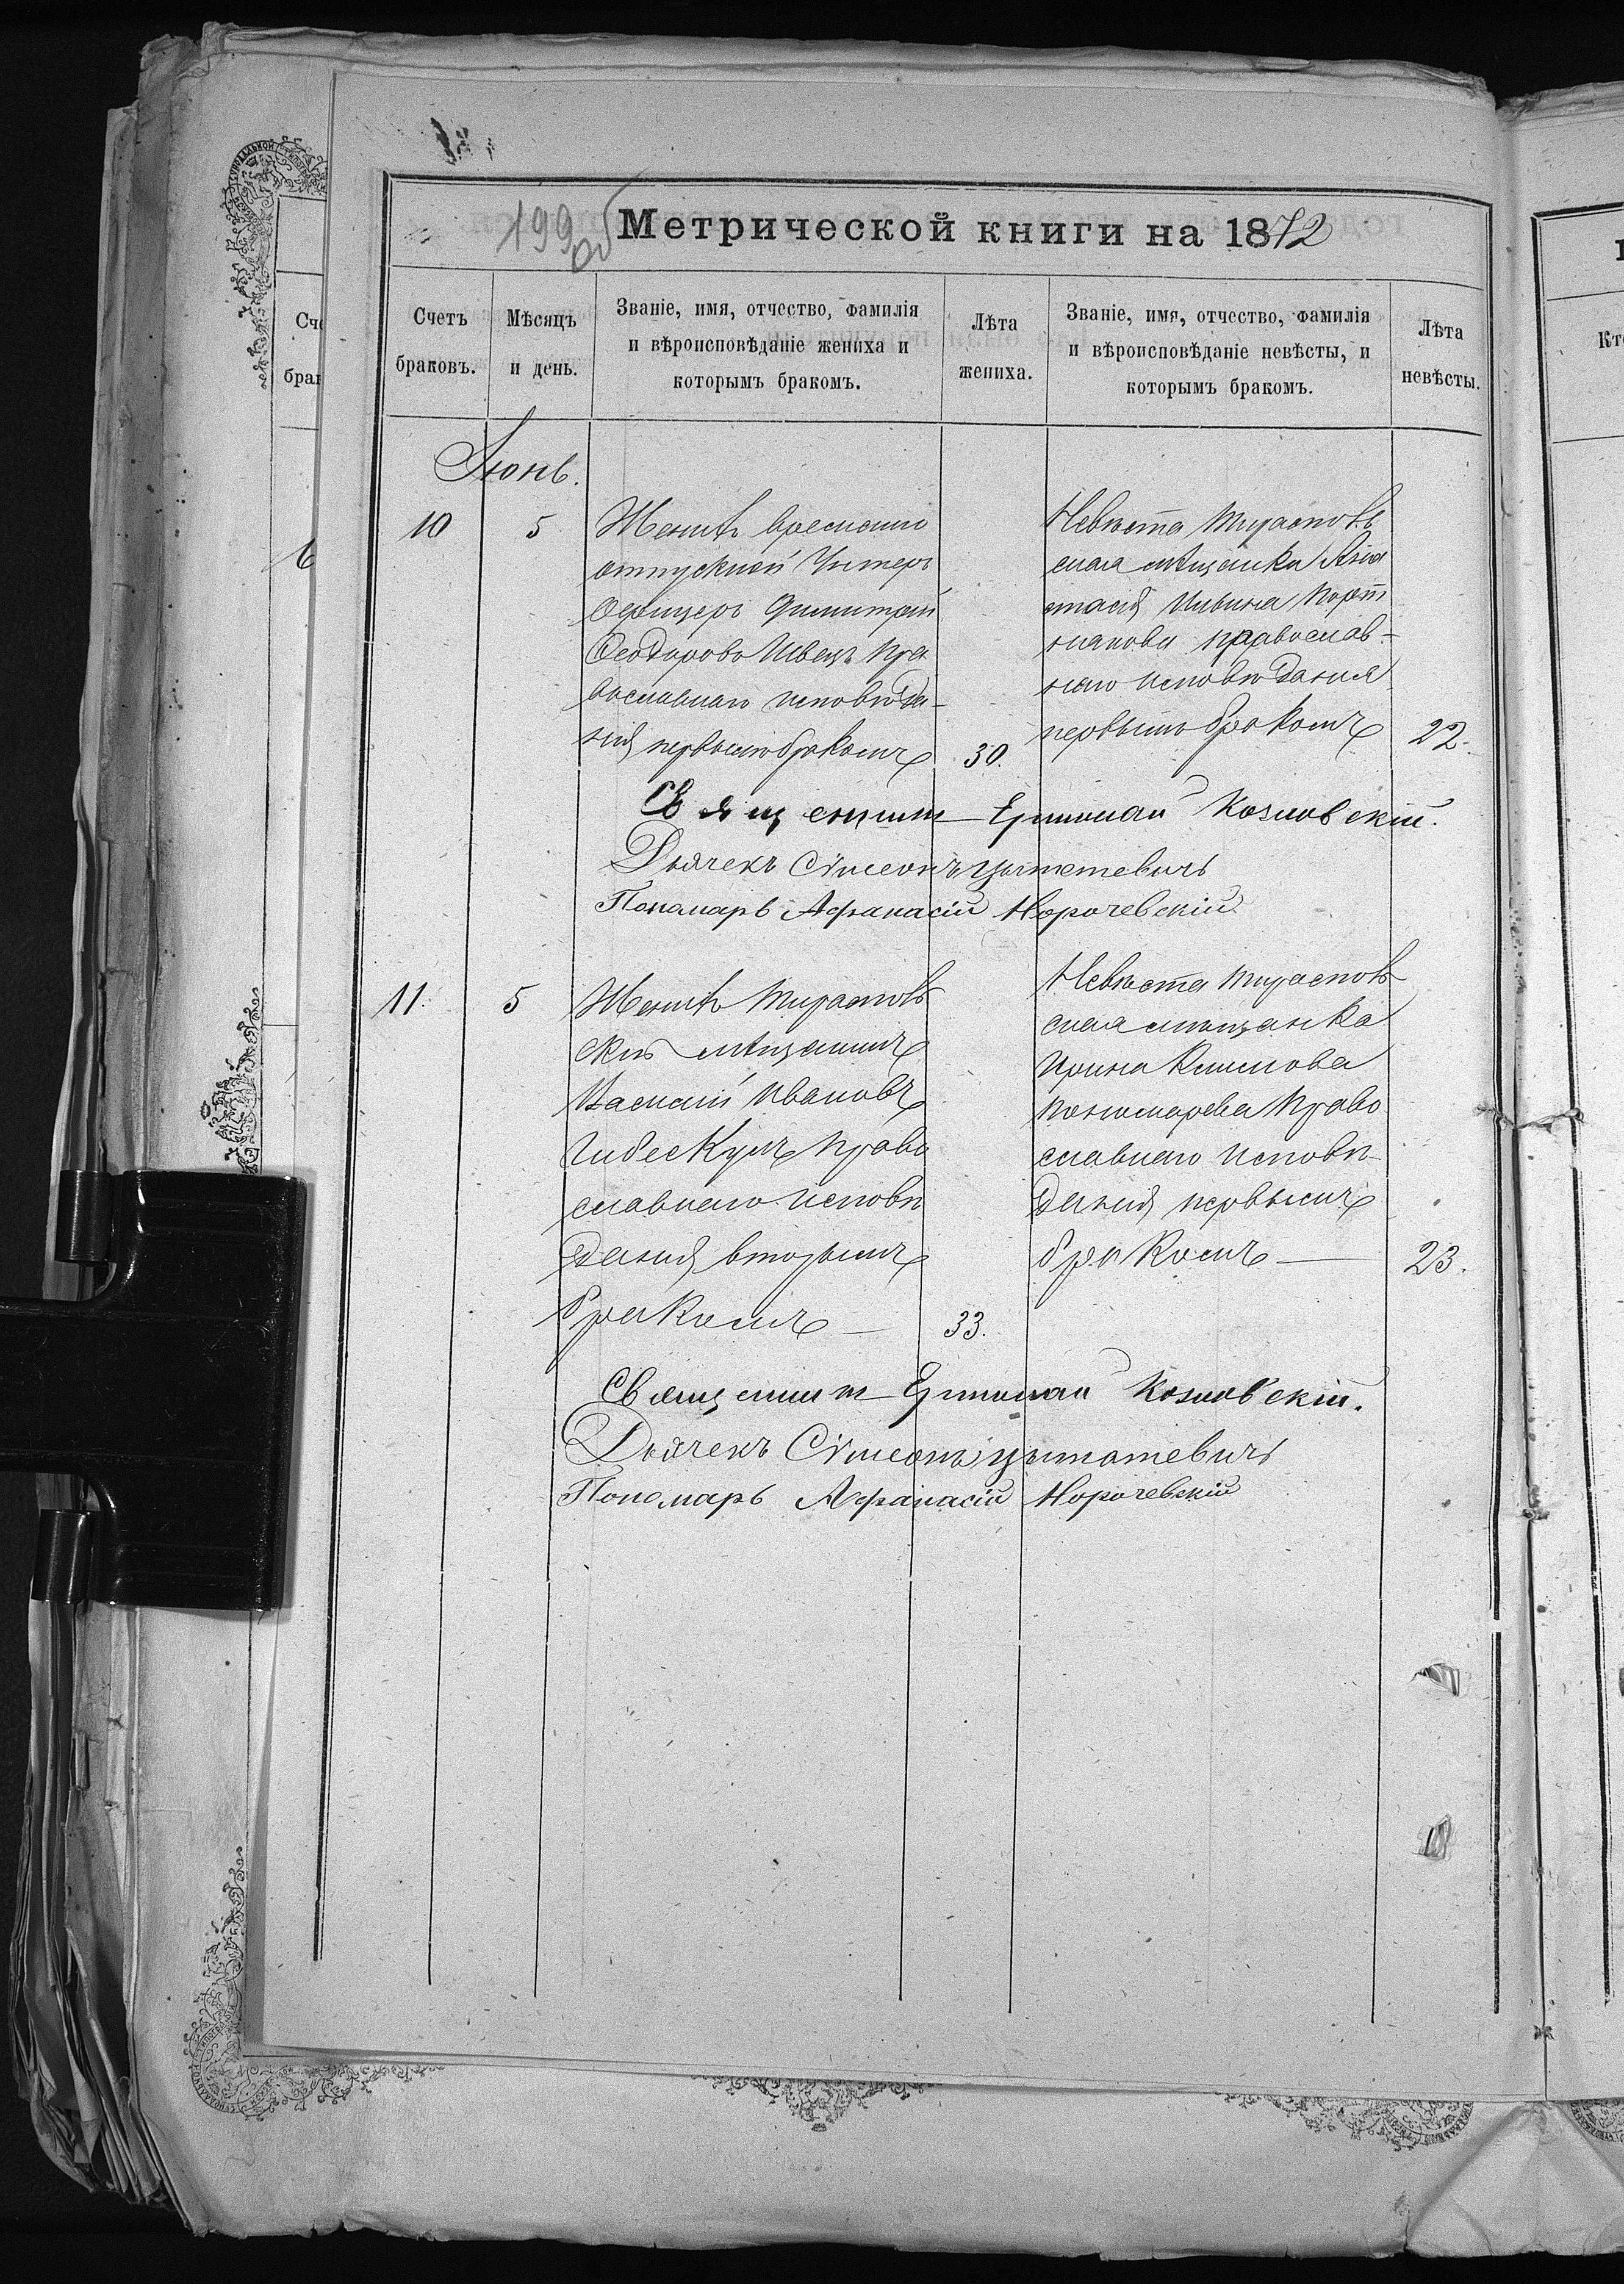 199 об
Метрической книги на 1872
Счетъ браковъ.
Мѣсяцъ и день.
Званіе, имя, отчество, фамилія и вѣроисповѣданіе жениха и которымъ бракомъ.
Лѣта жениха.
Званіе, имя, отчество, фамилія и вѣроисповѣданіе невѣсты, и которымъ бракомъ.
Лѣта невѣсты.
Іюнь.
10
5
Женихъ временно
отпускной Унтеръ
Офицеръ Димитрий
Феодоровъ Швецъ пра
вославнаго исповѣда-
нія первымъ бракомъ
30.
Невѣста тираспол
ская мѣщанка Ана
стасія Ильина Порт
някова православ-
наго исповѣданія
первымъ бракомъ
22.
Священник Козловскій.
Дьячекъ Сѵмеонъ
Пономарь Афанасій Норочевскій
11.
5
Женихъ тираспол
скій мѣщанинъ
Василий Ивановъ
Гидескулъ право
славнаго исповѣ
данія вторымъ
бракомъ —
33.
Невѣста тираспол
ская мѣщанка
Ирина Климова
Пономарева право
славнаго исповѣ-
данія первымъ
бракомъ —
23.
Священник Козловскій.
Дьячекъ Сѵмеонъ
Пономарь Афанасій Норочевскій